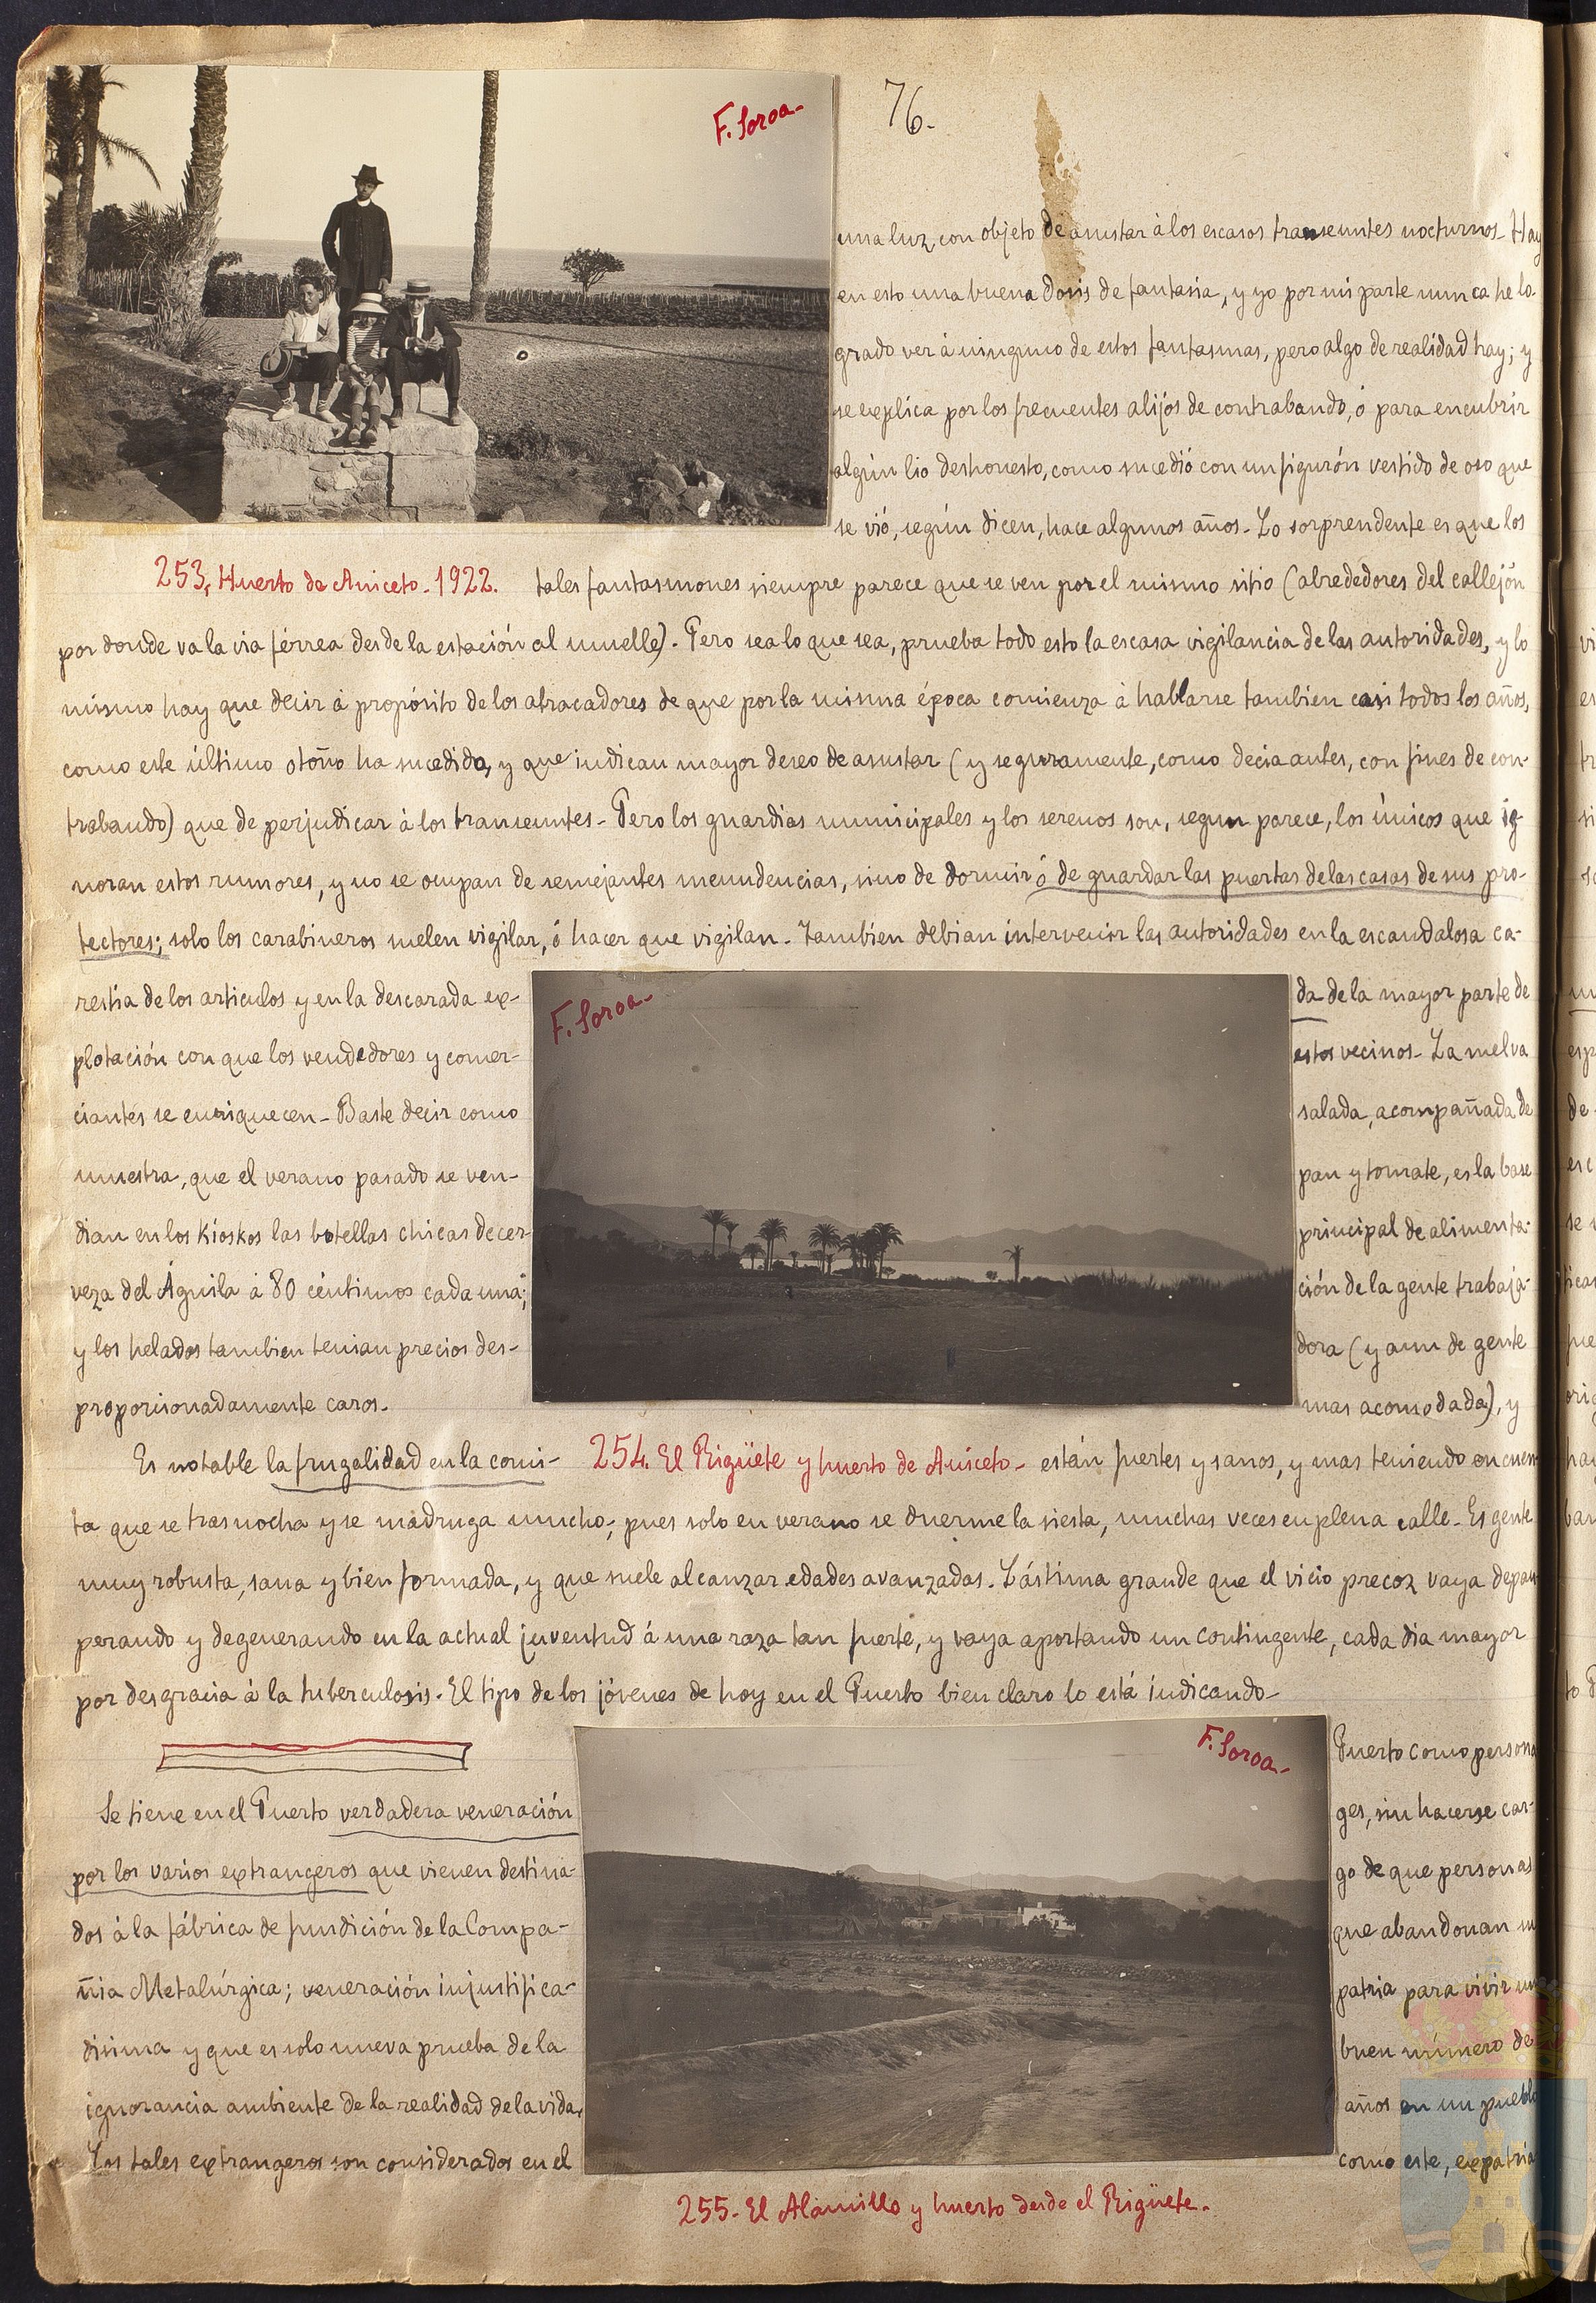 F. Soroa-
76.
una luz, con objeto de asustar á los escasos transeuntes nocturnos- Hay
en esto una buena dosis de fantasia, y yo por mi parte nunca he lo-
grado ver á ninguno de estos fantasmas, pero algo de realidad hay; y
se explica por los frecuentes alijos de contrabando, ó para encubrir
algún lio deshonesto, como sucedió con un figurón vestido de oso que
se vió, según dicen, hace algunos años- Lo sorprendente es que los
253, Huerto de Aniceto- 1922.
tales fantasmones siempre parece que se ven por el mismo sitio (alrededores del callejón
por donde va la via férrea desde la estación al muelle). Pero sea lo que sea, prueba todo esto la escasa vigilancia de las autoridades, y lo
mismo hay que decir á propósito de los atracadores de que por la misma época comienza á hablarse tambien casi todos los años,
como este último otoño ha sucedido, y que indican mayor deseo de asustar (y seguramente, como decia antes, con fines de con-
trabando) que de perjudicar á los transeuntes- Pero los guardias municipales y los serenos son, segun parece, los únicos que ig-
noran estos rumores, y no se ocupan de semejantes menudencias, sino de dormir ó de guardar las puertas de las casas de sus pro-
tectores; solo los carabineros suelen vigilar, ó hacer que vigilan- Tambien debian intervenir las autoridades en la escandalosa ca-
restia de los articulos y en la descarada ex-
plotación con que los vendedores y comer-
ciantes se enriquecen- Baste decir como
muestra, que el verano pasado se ven-
dian en los Kioskos las botellas chicas de cer-
veza del Águila á 80 céntimos cada una;
y los helados tambien tenian precios des-
proporcionadamente caros.
Es notable la frugalidad en la comi-
F. Soroa-
254. El Rigüete y huerto de Aniceto-
da de la mayor parte de
estos vecinos- La melva
salada, acompañada de
pan y tomate, es la base
principal de alimenta-
ción de la gente trabaja-
dora (y aun de gente
mas acomodada), y
están fuertes y sanos, y mas teniendo en cuen
ta que se trasnocha y se madruga mucho; pues solo en verano se duerme la siesta, muchas veces en plena calle- Es gente
muy robusta, sana y bien formada, y que suele alcanzar edades avanzadas. Lástima grande que el vicio precoz vaya depau
perando y degenerando en la actual juventud á una raza tan fuerte, y vaya aportando un contingente, cada dia mayor
por desgracia á la tuberculosis. El tipo de los jóvenes de hoy en el Puerto bien claro lo está indicando-
Se tiene en el Puerto verdadera veneración
por los varios extrangeros que vienen destina-
dos á la fábrica de fundición de la Compa-
ñia Metalúrgica; veneración injustifica-
disima y que es solo nueva prueba de la
ignorancia ambiente de la realidad de la vida.
Los tales extrangeros son considerados en el
F. Soroa-
255- El Alamillo y huerto desde el Rigüete.
Puerto como persona
ges, sin hacerse car-
go de que personas
que abandonan su
patria para vivir un
buen número de
años en un pueblo
como este, expatria